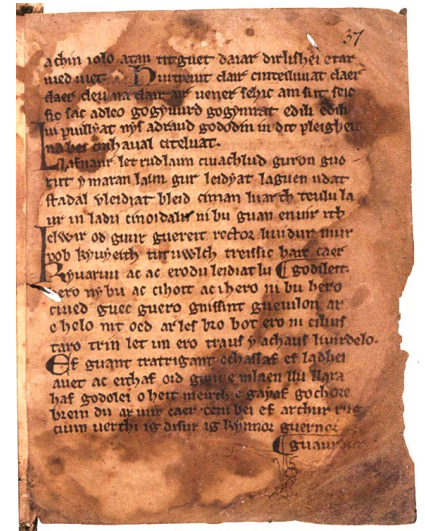 37
achin iolo atan titguet daiar dirlishei etar
med met. Huitreuit clair cinteiluuat claer
claer cleu na clair air uener sehic am sut seic
sic sac adleo gogyuurd gogymrat edili edili
ui puillyat nys adraud gododin in dit pleigheit
na bei cinhaual citeluat.
Llafnaur let rudlaun cuachlud guron guo
rut y maran laun gur leidyat laguen udat
stadal vleidiat bleid ciman luarch teulu la
ur in ladu cinoidalu ni bu guan enuir rth
elwir od guur guereit rector liuidur mur
pob kyuyeith tut uwlch treissic hair caer
Ryuaruu ac ac erodu leidiat lu godisseit
ero ny bu ac cihoit ac i hero ni bu hero
ciued guec guero gnissint gueuilon ar
e helo nit oed ar les bro bot ero ni cilius
taro trin let un ero traus y achaus liuirdelo.
Ef guant tratrigant echassaf ef ladhei
auet ac eithaf oid guiu e mlaen llu llara
haf godolei o heit meirch e gayaf gochore
brein du ar uur caer ceni bei ef arthur rug
ciuin uerthi ig disur ig kynnor guernor
guaur